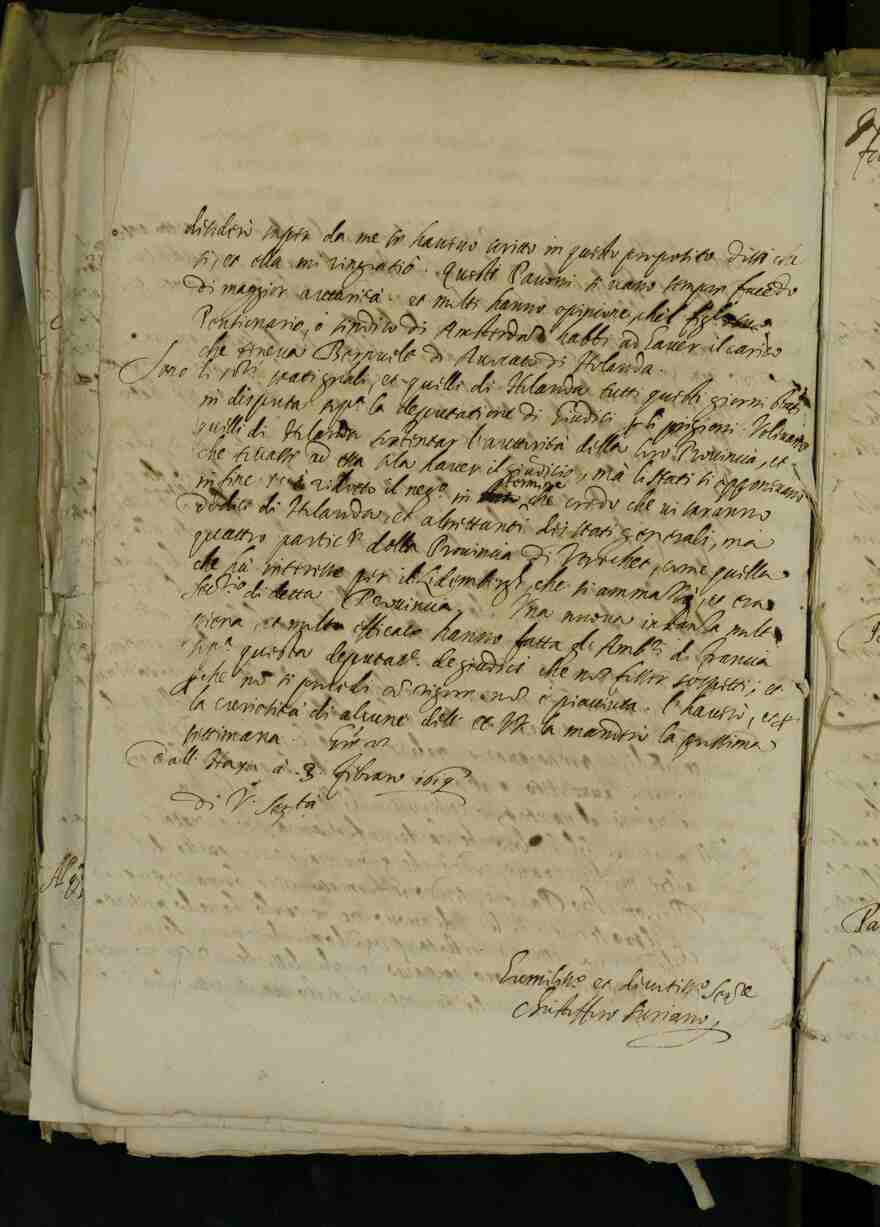 desiderò saper da me se havevo scritto in questo proposito dissi di
sì, et ella mi ringratiò. Questi Pavoni si vano sempre facendo
di maggior auttorità. et molti hanno opinione, ch'il figliolo
Pensionario, ò sindico di Amsterdam habbi ad haver il carico
che teneva Bernvele di Avvocato di Holanda.
Sono li sri stati generali, et quelli di Holanda tutti questi giorni stati
in disputa sopra la deputatione di Giudici per li prigioni. Volevano
quelli di Holanda sostentar l'auttorità della loro Provincia, et
che toccasse ad essa sola haver il giudicio, mà li stati si opponevano
in fine si è ridotto il nego in termine che credo che vi saranno
dodici di Holanda, et altrettanti delli stati generali, mà
quattro partic.ri della Provincia di Utrechet, come quella
che hà interesse per il Ledemberg, che si ammazzò, et era
Secr.rio di detta Provincia. Una nuova instanza molto
piena, et molto efficace hanno fatta gl'Amb.ri di Francia
sop.a questa deputat.e de giudici che non fosser sospetti; et
che non si proceda con rigore non è piaciuta. l'haverò, et per
la curiosità di alcune delle EE VV. la manderò la prossima
settimana. Gratie
Dall'Haya à 3 Febraro 1619
Di V. Ser.tà
Humiliss.o et devotiss.o Ser.re
Christofforo Suriano,